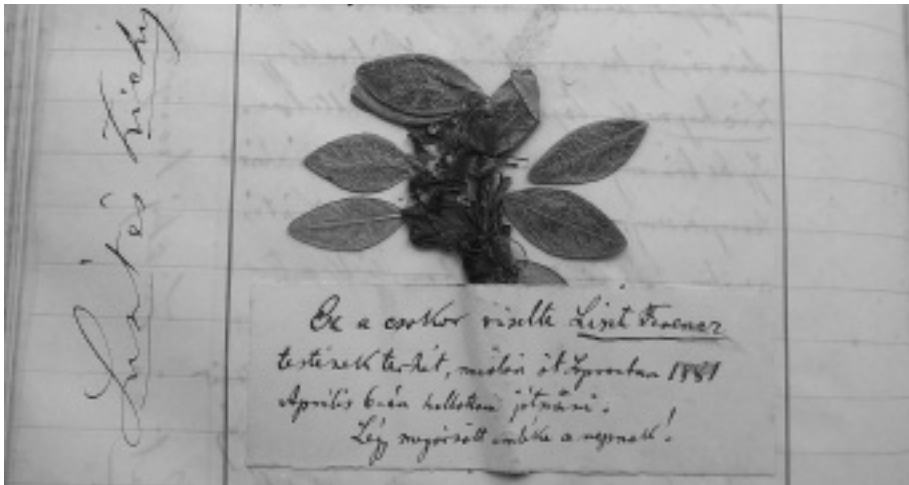 Liszt és Zichy
Ez a csokor viselte Liszt Ferencz
testének terhét, midőn őt Sopronban 1881
Április 6-án hallottam játszani.
Légy megőrzött emléke a napnak!